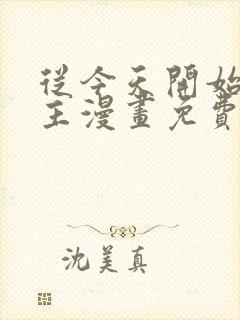 從今天開始
主漫畫免費
沈美真